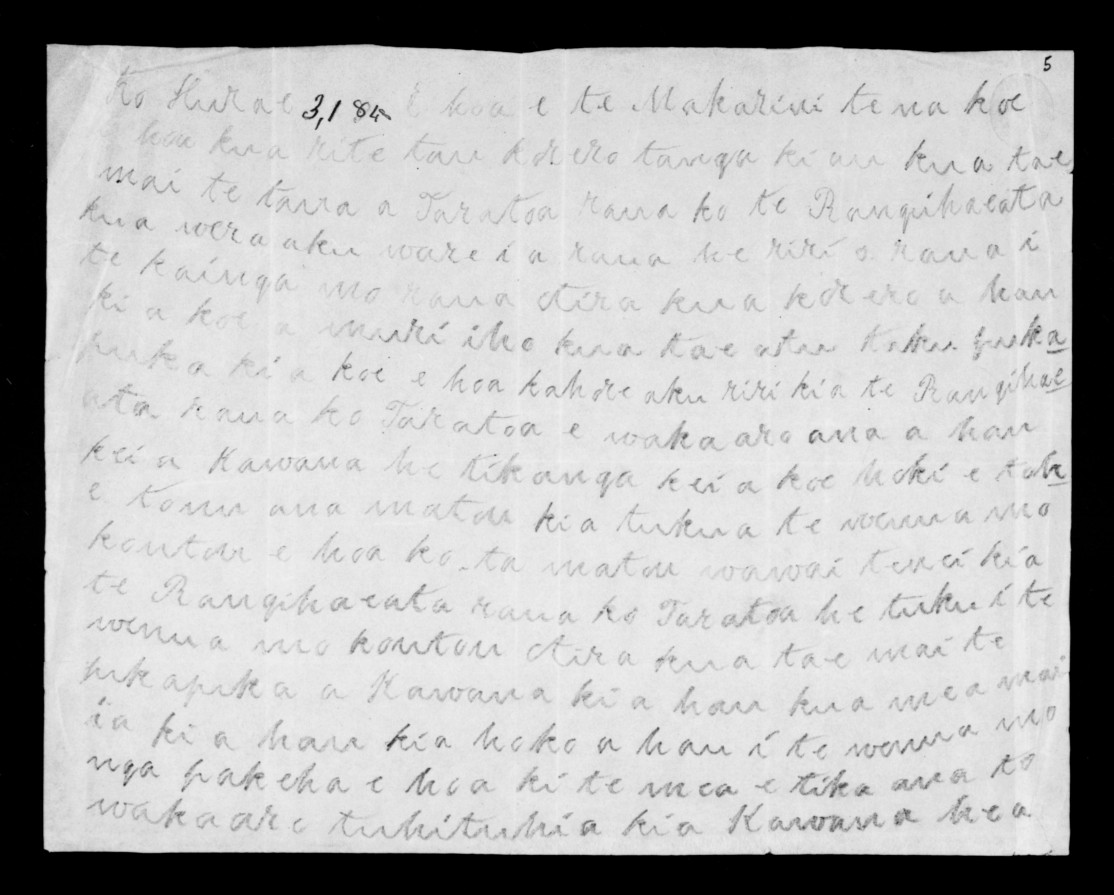 5
Ko Hurae 3,1 84 E hoa e te Makarini tena koe
hoa kua rite tau korero tanga ki au kua tae
mai te taua a Taratoa raua ko te Rangihaeata
kua wera aku ware i a raua he riri o raua i
te kainga mo raua otira kua korero a hau
ki a koe a muri iho kua tae atu taku puka
puka ki a koe e hoa kahore aku riri kia te Rangihae
ata raua ko Taratoa e wakaaro ana a hau
kei a Kawana he tikanga kei a koe hoki e tohe
e tonu ana matou kia tukua te wenua mo
koutou e hoa ko ta matou wawai tenei kia
te Rangihaeata raua ko Taratoa he tuku i te
wenua mo koutou otira kua tae mai te
pukapuka a Kawana ki a hau kua mea mai
ia ki a hau kia hoko a hau i te wenua mo
nga pakeha e hoa ki te mea e tika ana to
wakaaro tuhituhia kia Kawana hea